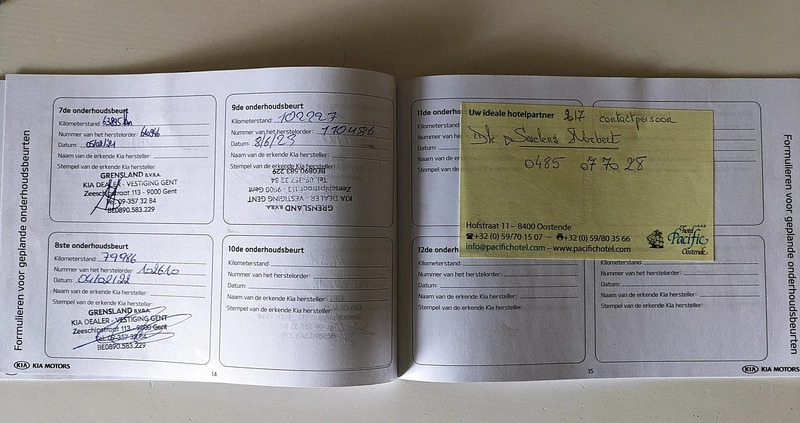 Formulieren voor geplande onderhoudsbeurten
7de onderhoudsbeurt
Kilometerstand:
Nummer van het herstelorder:
Datum:
Naam van de erkende Kia hersteller:
Stempel van de erkende Kia hersteller:
GRENSLAND B.V.B.A.
KIA DEALER - VESTIGING GENT
Zeeschipstraat 113 - 9000 Gent
Tel. 09-357 32 84
BE0890.583.229
8ste onderhoudsbeurt
Kilometerstand: 79986
Nummer van het herstelorder: 102610
Datum: 04/02/22
Naam van de erkende Kia hersteller:
Stempel van de erkende Kia hersteller:
GRENSLAND B.V.B.A.
KIA DEALER - VESTIGING GENT
Zeeschipstraat 113 - 9000 Gent
Tel. 09-357 32 84
BE0890.583.229
KIA KIA MOTORS
9de onderhoudsbeurt
Kilometerstand: 102227
Nummer van het herstelorder: 110486
Datum: 8/6/23
Naam van de erkende Kia hersteller:
Stempel van de erkende Kia hersteller:
GRENSLAND B.V.B.A.
KIA DEALER - VESTIGING GENT
Zeeschipstraat 113 - 9000 Gent
Tel. 09-357 32 84
BE0890.583.229
10de onderhoudsbeurt
Kilometerstand:
Nummer van het herstelorder:
Datum:
Naam van de erkende Kia hersteller:
Stempel van de erkende Kia hersteller:
14
11de onderhoudsbeurt
Kilometerstand:
Nummer
Datum:
Naam van de
Stempel van
Uw ideale hotelpartner contactpersoon
Norbert
0485 07 70 28
Hofstraat 11 – 8400 Oostende
+32 (0) 59/70 15 07 – +32 (0) 59/80 35 66
info@pacifichotel.com – www.pacifichotel.com
hotel
Pacific
Oostende
12de
Kilometerstand:
Nummer van het herstelorder:
Datum:
Naam van de erkende Kia hersteller:
Stempel van de erkende Kia hersteller:
15
Formulieren voor geplande onderhoudsbeurten
KIA KIA MOTORS